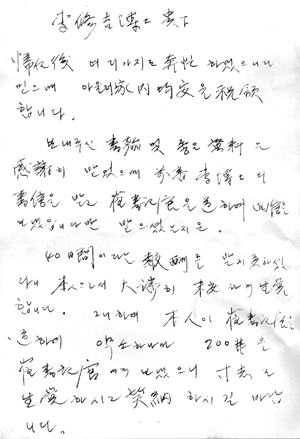 李修吉博士 貴下
歸任後 여러가지로 奔忙 하였으니
믿으며 아울러 家內 均安을 祝願
합니다.
보내주신 書翰 및 좋은 資料 는
感謝히 받았으며 李博士의
書信을 받고 崔書記官을 通하여 回信을
보냈읍니다만 받으셨는지요.
40日間이라는 報酬를 받지 못하셨
다니 本人으로서 大端히 未安하게 生覺
합니다. 本人이 崔書記官을
通하여 약소하나마 200弗을
崔書記官에게 보냈으니 寸志로
生覺하시고 笑納 하시길 바랍
니다.